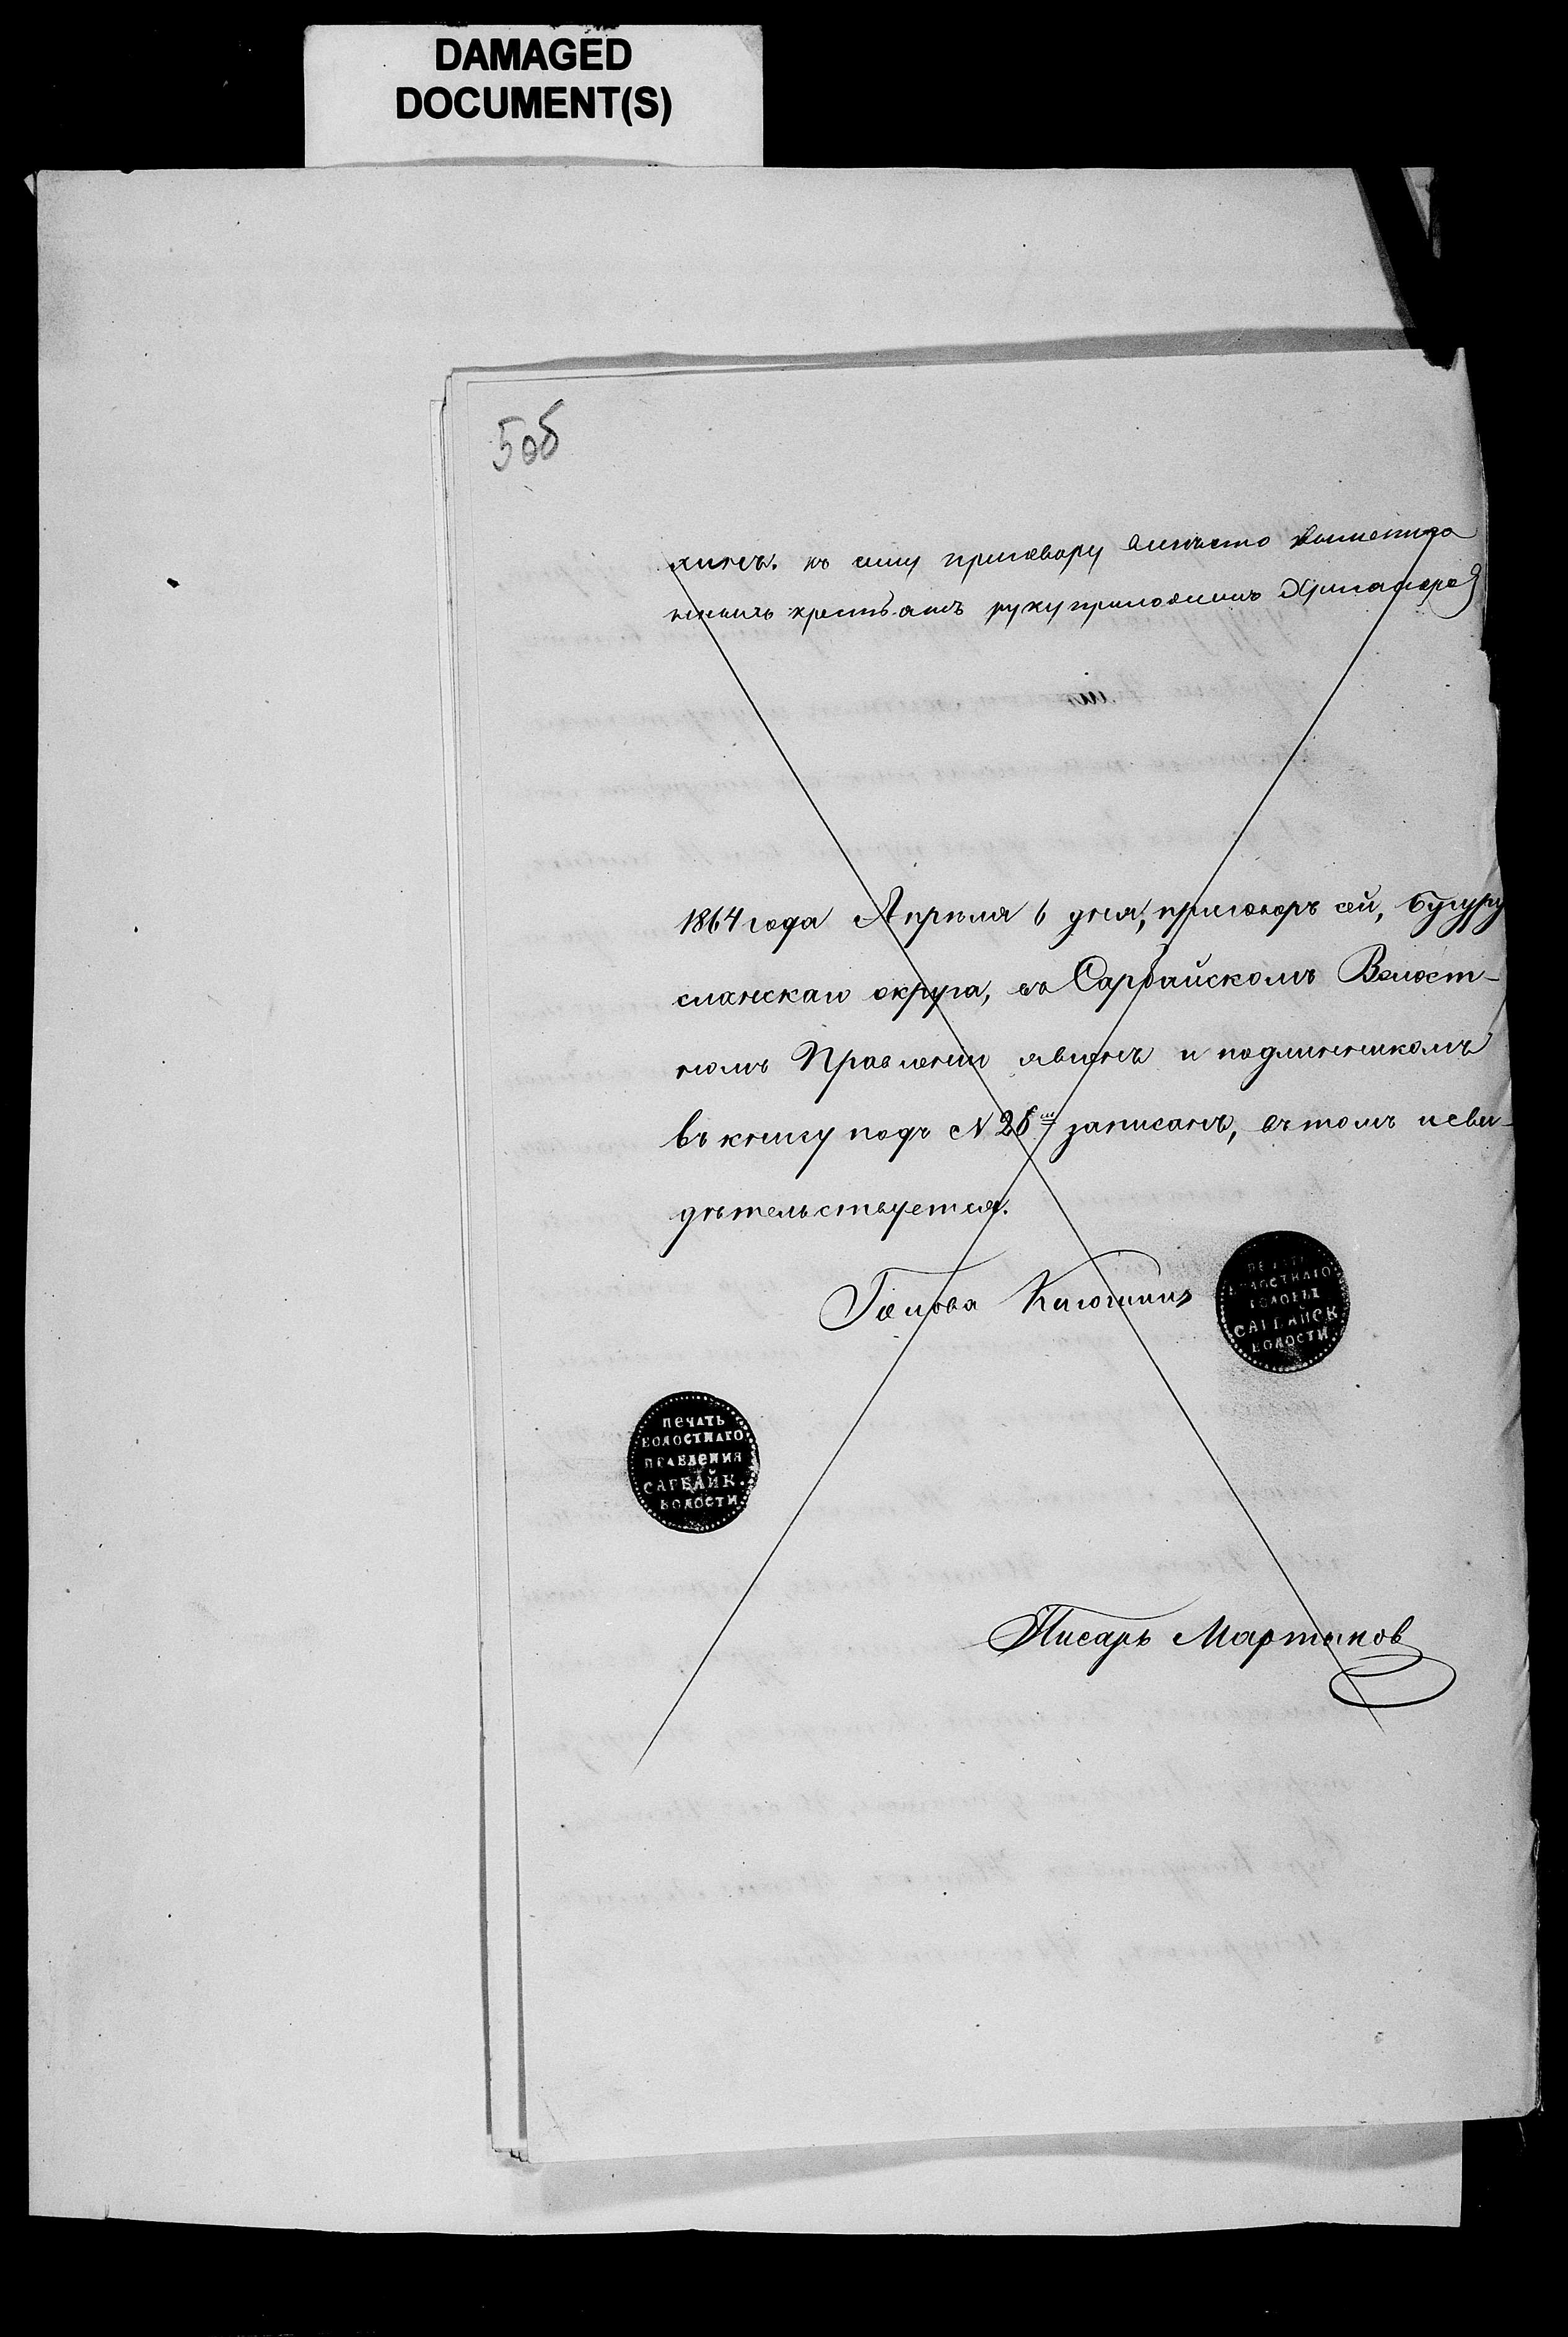 DAMAGED
DOCUMENT(S)
5об
к сему приговору вместо вышепизо
руку приложилъ
1864 года Апрѣля 6 дня, приговоръ сей, Бугуру
сланскаго округа, въ Сарбайскомъ Волост-
номъ Правленіи явленъ и подлинникомъ
въ книгу подъ N 28 записанъ, въ томъ и сви-
дѣтельствуется.
Голова Клюшинъ
ПЕЧАТЬ
ВОЛОСТНАГО
ГОЛОВЫ
САРБАЙСК
ВОЛОСТИ
ПЕЧАТЬ
ВОЛОСТНАГО
ПРАВЛЕНИЯ
САРБАЙК.
ВОЛОСТИ
Писарь Мартынов